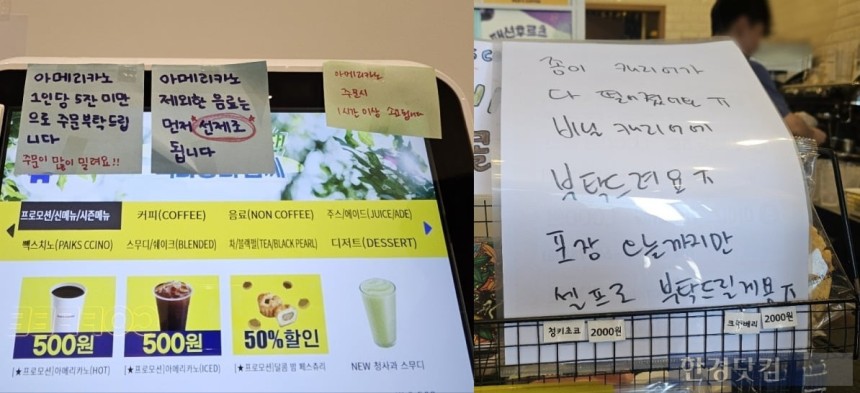 아메리카노
1인당 5잔 미만
으로 주문부탁드립
니다
주문이 많이 밀려요!!
아메리카노
제외한 음료는
먼저 선제조
됩니다
아메리카노
주문시
1시간 이상 소요됩니다
프로모션/신메뉴/시즌메뉴
커피(COFFEE)
음료(NON COFFEE)
주스/에이드(JUICE/ADE)
빽스치노(PAIKS CCINO)
스무디/쉐이크(BLENDED)
차/블랙펄(TEA/BLACK PEARL)
디저트(DESSERT)
500원
500원
50%할인
[★프로모션]아메리카노(HOT)
[★프로모션]아메리카노(ICED)
[★프로모션]달콤 밤 페스츄리
NEW 청사과 스무디
종이 캐리어가
다 떨어졌어요 ㅠ
비닐 캐리어에
부탁드려요ㅠ
포장 오늘까지만
셀프로 부탁드릴게요ㅠ
청키초코 2000원
크랜베리 2000원
한경닷컴